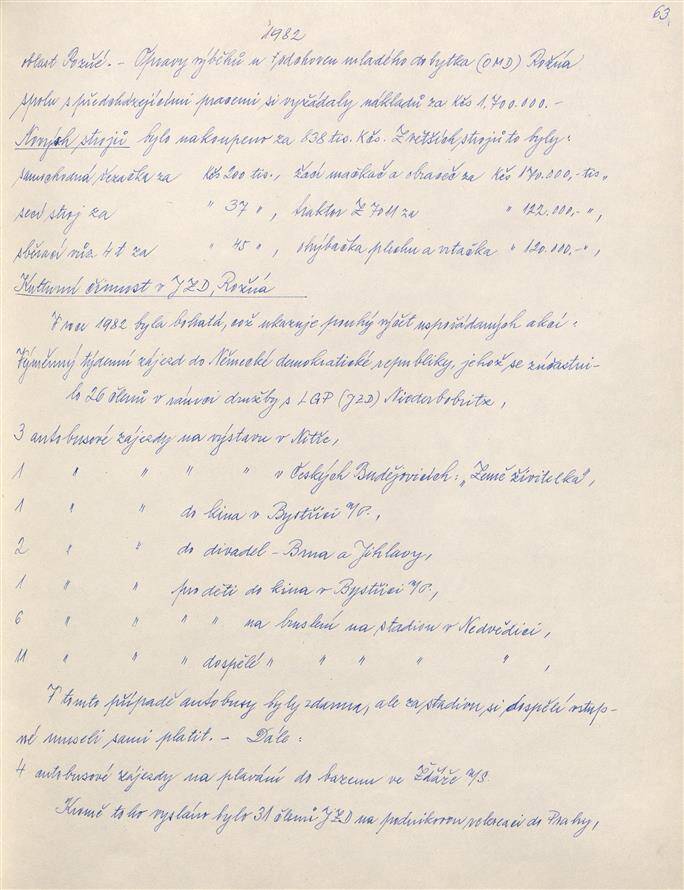 63.
1982
oblast Rožné. - Opravy výběhů u odchoven mladého dobytka (OMD) Rožná
spolu s předcházejícími pracemi si vyžádaly nákladů za Kčs 1,700.000.-
Nových strojů bylo nakoupeno za 638 tis. Kčs. Z větších strojů to byly:
samochodná řezačka za Kčs 200 tis., žací mačkač a obraceč za Kčs 170.000,- tis"
secí stroj za " 37 " , traktor Z 7011 za " 122.000,- " ,
sběrací vůz 4 t za " 45 " , ohýbačka plechu a vrtačka " 120.000.- " ,
Kulturní činnost v JZD, Rožná
V roce 1982 byla bohatá, což ukazuje pouhý výčet uspořádaných akcí:
Výměnný týdenní zájezd do Německé demokratické republiky, jehož se zúčastni-
lo 26 členů v rámci družby s LGP (JZD) Niederbobritz,
3 autobusové zájezdy na výstavu v Nitře,
1 " " " " v Českých Budějovicích: „Země živitelka",
1 " " do kina v Bystřici n/P.,
2 " " do divadel - Brna a Jihlavy,
1 " " pro děti do kina v Bystřici n/P.,
6 " " " " na bruslení na stadion v Nedvědici,
11 " " " dospělé " " " " " ,
V tomto případě autobusy byly zdarma, ale za stadion si dospělí vstup-
né museli sami platit. - Dále:
4 autobusové zájezdy na plavání do bazenu ve Žďáře n/S.
Kromě toho vysláno bylo 31 členů JZD na podnikovou rekreaci do Prahy,